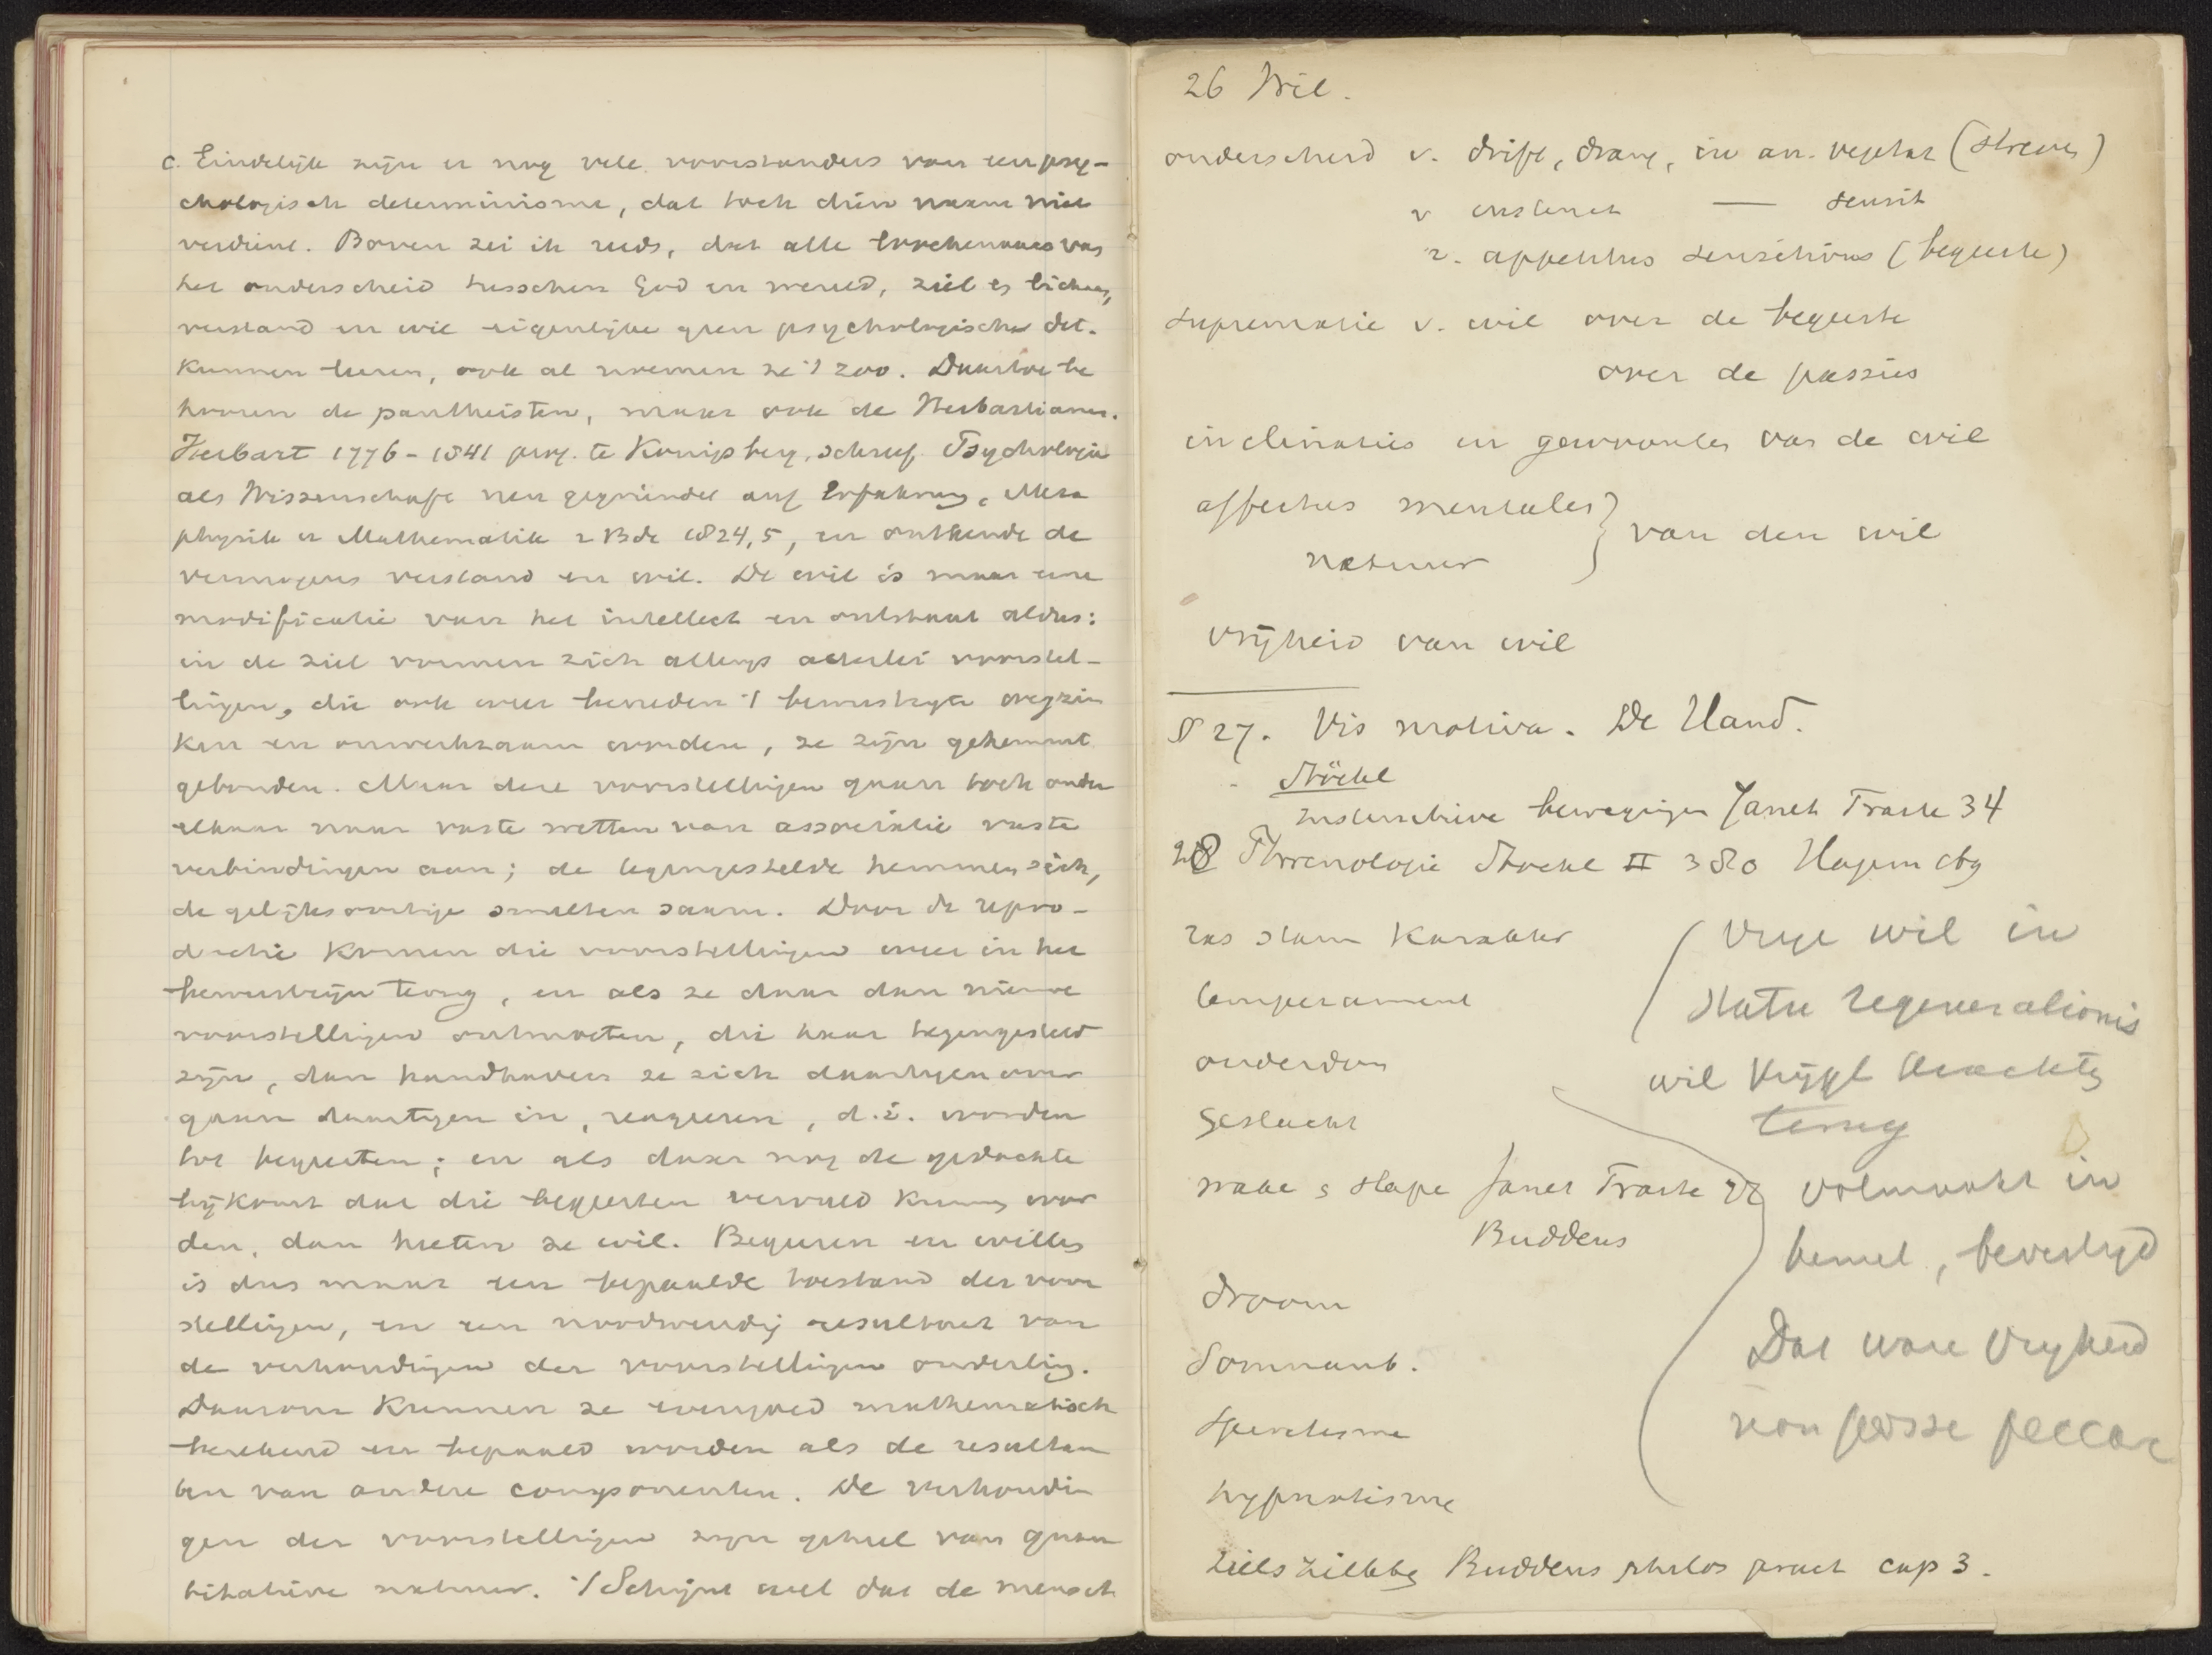 c. Eindelijk zijn er nog vele voorstanders van een psy-
chologisch determinisme, dat toch dien naam niet
verdient. Boven zei ik reeds, dat alle loochenaars van
het onderscheid tusschen God en wereld, ziel en lichaam,
verstand en wil eigenlijke geen psychologische det.
kunnen leeren, ook al noemen ze 't zoo. Daartoe be
hooren de pantheisten, maar ook de Herbartianen.
Herbart 1776-1841 prof. te Konigsberg, schreef Psychologie
als Wissenschaft neu gegründet auf Erfahrung, Meta
physik u Mathematik 2 Bde 1824,5, en ontkende de
vermogens verstand en wil. De wil is maar eene
modificatie van het intellect en ontstaat aldus:
in de ziel vormen zich allengs allerlei voorstel-
lingen, die ook weer beneden 't bewustzijn wegzin
ken en onwerkzaam worden, ze zijn gehemmt
gebonden. Maar deze voorstellingen gaan toch onder
elkaar naar vaste wetten van associatie vaste
verbindingen aan; de tegengestelde hemmen zich,
de gelijksoortige smelten saam. Door de repro-
ductie komen die voorstellingen weer in het
bewustzijn terug, en als ze daar dan nieuwe
voorstellingen ontmoeten, die haar tegengesteld
zijn, dan handhaven ze zich daartegenover
gaan daartegen in, reageeren, d.i. worden
tot begeerten; en als daar nog de gedachte
bijkomt dat die begeerten vervuld kunnen wor
den, dan heeten ze wil. Begeeren en willen
is dus maar een bepaalde toestand der voor
stellingen, en een noodwendig resultaat van
de verhoudingen der voorstellingen onderling.
Daarom kunnen ze evengoed mathematisch
berekend en bepaald worden als de resultan
ten van andere componenten. De verhoudin
gen der voorstellingen zijn geheel van quan
titatieve natuur. 't Schijnt wel dat de mensch
26 Wil.
onderscheid v. drift, drang, in an. vegetat (streven)
v instinct — sensit
v. appetitus sensitivus (begeerte)
suprematie v. wil over de begeerte
over de passies
inclinaties en gewoontes van de wil
affectus mentales } van den wil
natuur
vrijheid van wil
§ 27. Vis motiva. De Hand.
Stöckl
Instinctieve bewegingen Janet Traité 34
28 Phrenologie Stockl II 380 Hagenb
ras stam karakter
temperament
ouderdom
geslacht
wake & slape Janet Traité
Buddeus
droom
Somnamb.
Spiritisme
hypnotisme
zielsziekte Buddeus philos pract cap 3.
Vrije wil in
statu regenerationis
wil krijgt krachten
terug
volmaakt in
hemel, bevestigd
Dat ware vrijheid
non posse peccare